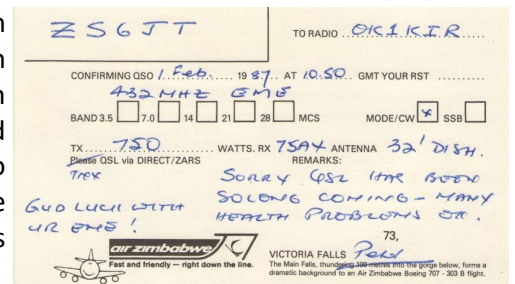 ZS6JT
TO RADIO OK1KIR
CONFIRMING QSO 1. Feb. 1987. AT 10.50 GMT YOUR RST
432 MHZ EME
BAND 3.5 7.0 14 21 28 MCS MODE/CW x SSB
TX 750 WATTS. RX 75A4 ANTENNA 32' DISH.
Please QSL via DIRECT/ZARS REMARKS:
TNX
SORRY QSL HAS BEEN
SO LONG COMING - MANY
HEALTH PROBLEMS OK.
GUD LUCK WITH
UR EME!
73,
air zimbabwe
Fast and friendly — right down the line.
VICTORIA FALLS
The Main Falls, thundering 100 metres into the gorge below, forms a
dramatic background to an Air Zimbabwe Boeing 707 - 303 B flight.